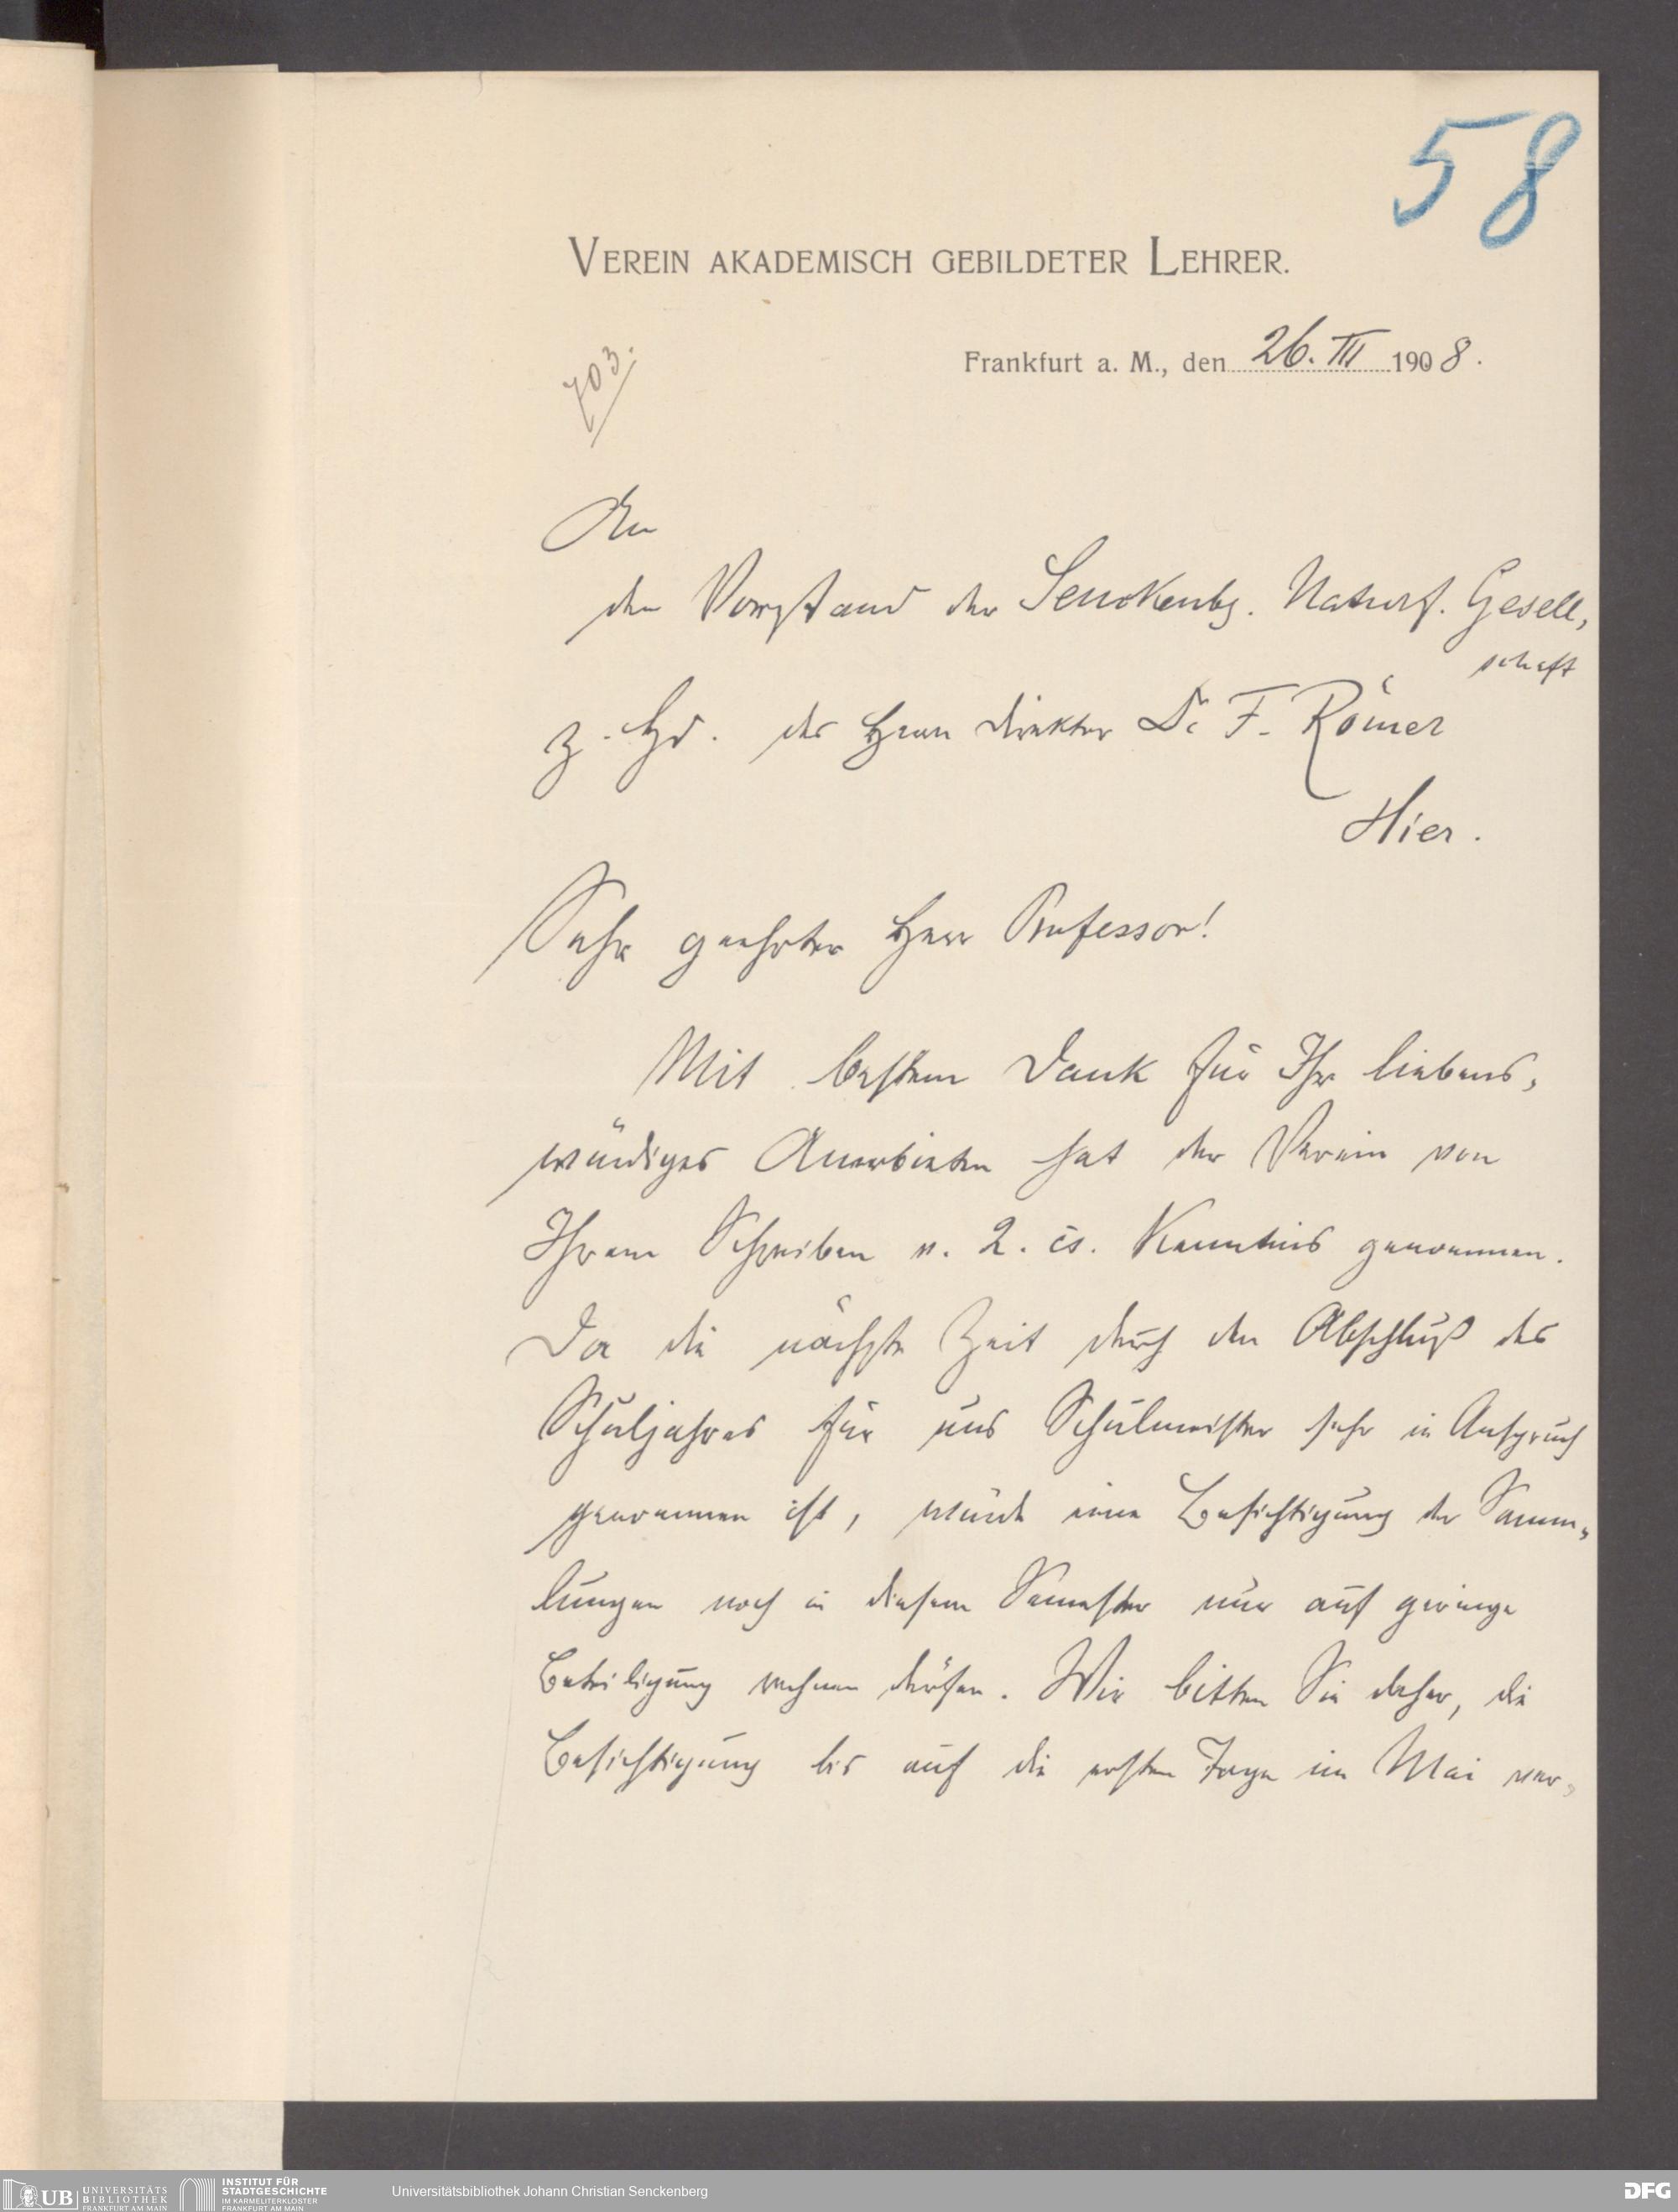 58
VEREIN AKADEMISCH GEBILDETER LEHRER.
Frankfurt a. M., den 26. III 1908.
703.
An
den Vorstand der Senckenbg. Naturf. Gesell-
schaft
z. Hd. des Herrn Direktor Dr F. Römer
Hier.
Sehr geehrter Herr Professor!
Mit bestem Dank für Ihr liebens-
würdiges Anerbieten hat der Verein von
Ihrem Schreiben v. 2. cs. Kenntnis genommen.
Da die nächste Zeit durch den Abschluß des
Schuljahres für uns Schulmeister sehr in Anspruch
genommen ist, würde eine Besichtigung der Samm-
lungen noch in diesem Semester nur auf geringe
Beteiligung rechnen dürfen. Wir bitten Sie daher, die
Besichtigung bis auf die ersten Tage im Mai ver-
UB UNIVERSITÄTS
BIBLIOTHEK
FRANKFURT AM MAIN
INSTITUT FÜR
STADTGESCHICHTE
IM KARMELITERKLOSTER
FRANKFURT AM MAIN
Universitätsbibliothek Johann Christian Senckenberg
DFG